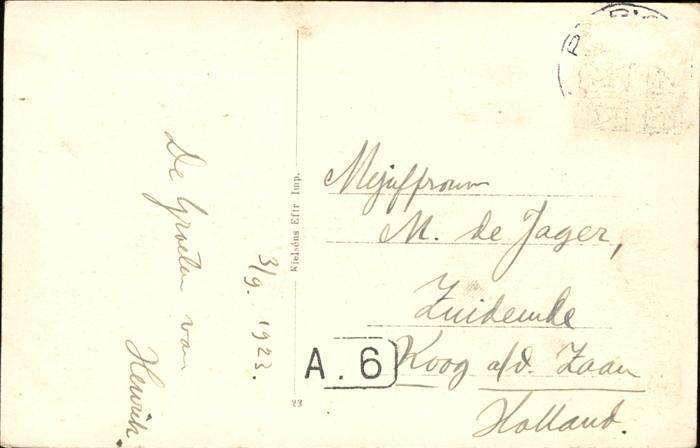 De Groeten van
Henrik.
3/9. 1923.
Nielsens Eftr Imp.
23
Mejuffrouw
M. de Jager,
Zuideinde
Koog a/d. Zaan
Holland.
A.6